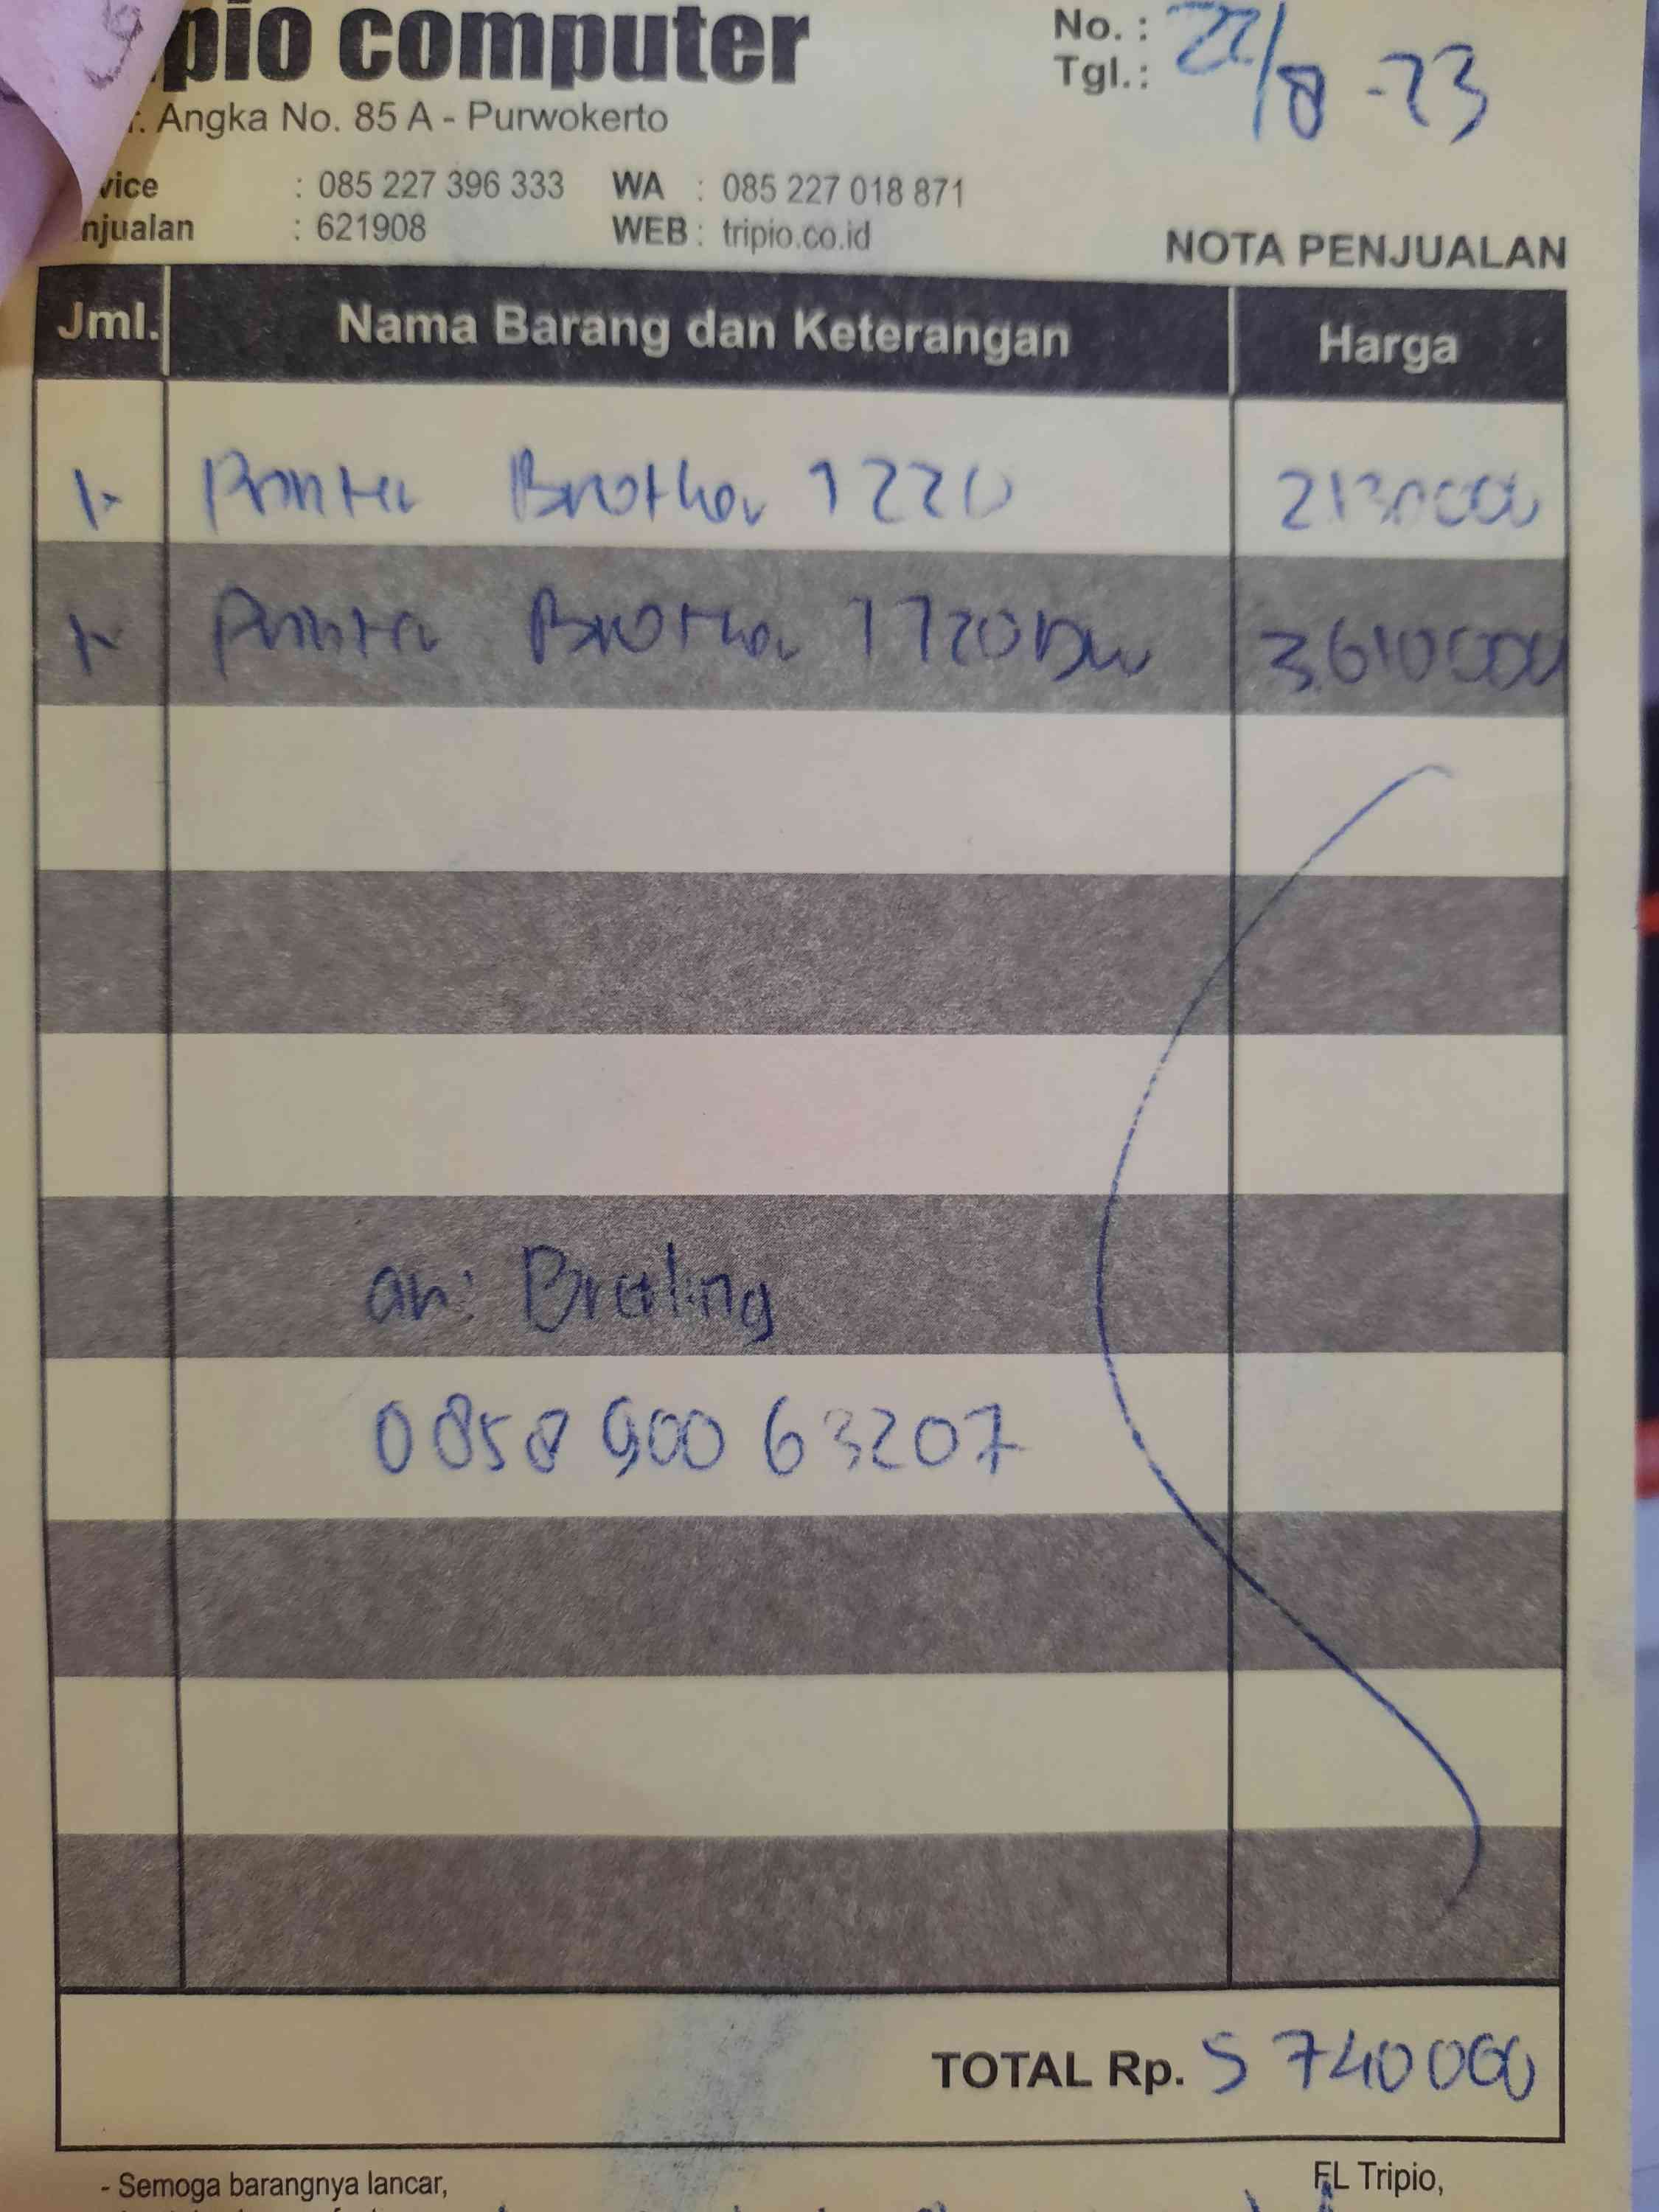 pio computer
No. :
Tgl.: 22/8-23
. Angka No. 85 A - Purwokerto
vice : 085 227 396 333 WA : 085 227 018 871
njualan : 621908 WEB : tripio.co.id
NOTA PENJUALAN
Jml. Nama Barang dan Keterangan Harga
1 Printer Brother 1220 2130000
1 Printer Brother T720DW 3.610000
an: Braling
0858 900 63207
TOTAL Rp. 5 740000
- Semoga barangnya lancar,
FL Tripio,